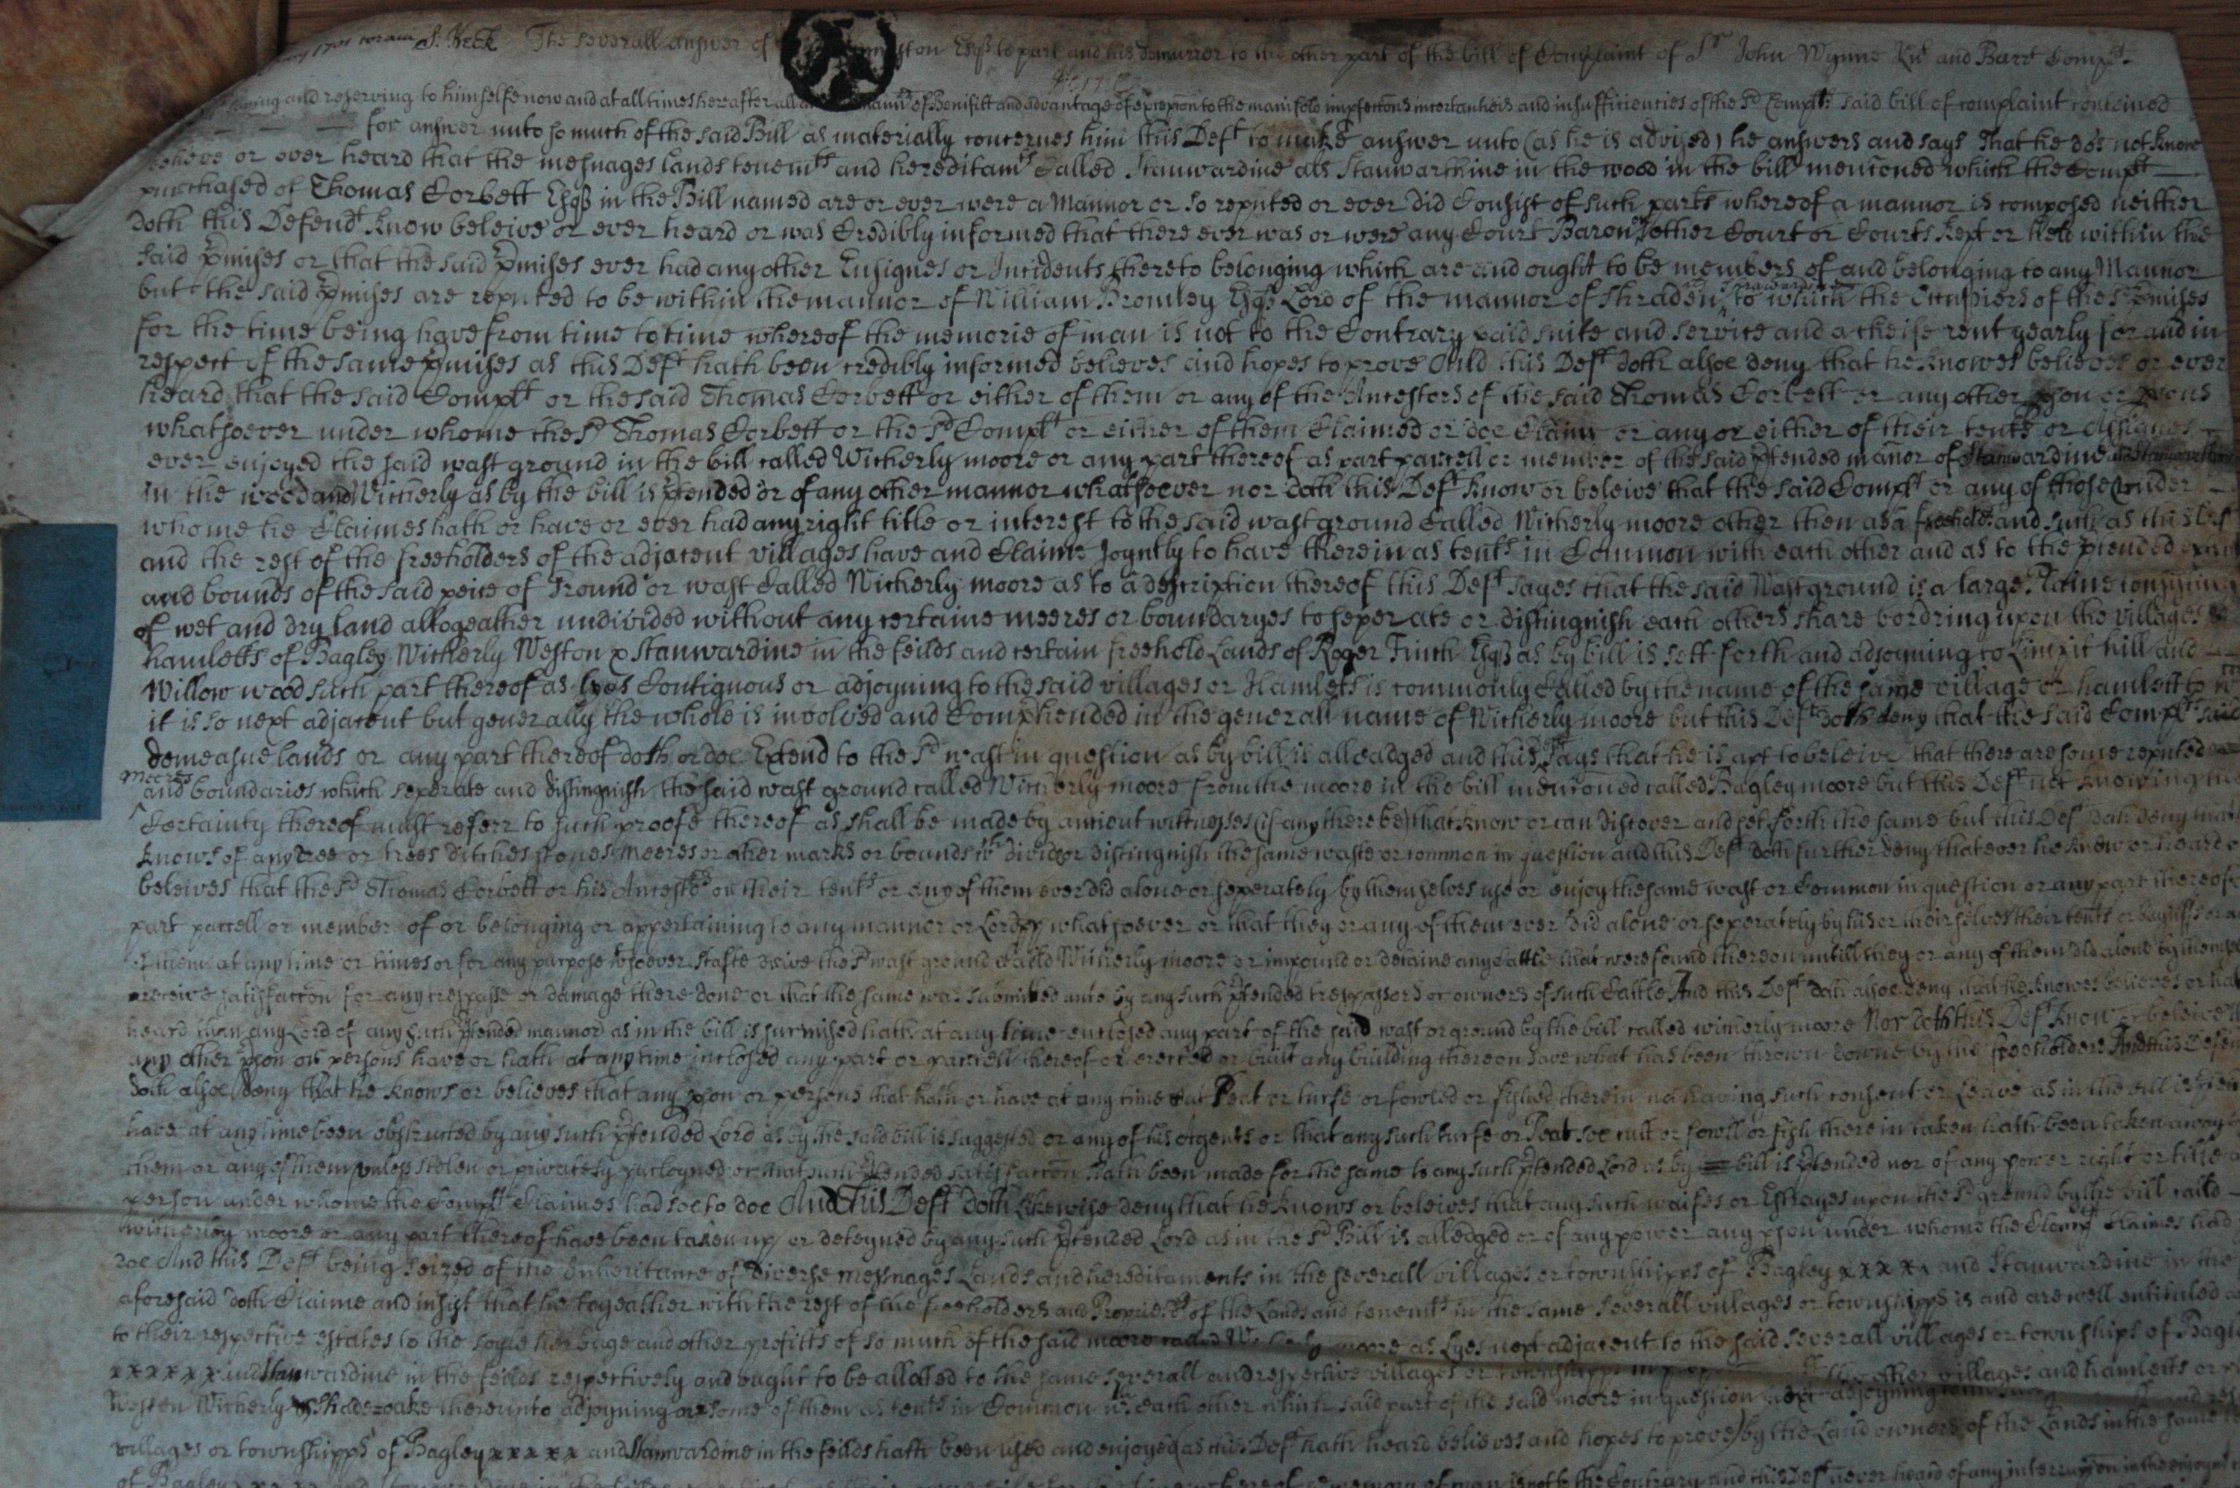 1701 coram S. Keck The severall Answer of ston Esqr to part and his demurrer to the other part of the bill of Complaint of Sr John Wynne Knt and Barrt Compt.
saving and reserving to himselfe now and at all times hereafter all mannr of Benifitt and advantage of excepcon to the manifold impfeccons incertainties and insufficiencies of the sd Complts said bill of complaint conteined
for answer unto so much of the said Bill as materially concernes him this Deft to make answer unto (as he is advized) he answers and says That he does not know
beleive or ever heard that the messuages lands tenemts and hereditamts Called Stanwardine als Stanwarthine in the wood in the bill menconed which the Complt
purchased of Thomas Corbett Esqr in the Bill named are or ever were a Mannor or so reputed or ever did Consist of such parts whereof a mannor is composed neither
doth this Defendt know beleive or ever heard or was Credibly informed that there ever was or were any Court Baron or other Court or Courts kept or held within the
said pmises or that the said pmises ever had any other Ensignes or Incidents thereto belonging which are and ought to be members of and belonging to any Mannor
but the said pmises are reputed to be within the mannor of William Bromley Esqr Lord of the mannor of Shraden to which the Occupiers of the sd pmises
for the time being have from time to time whereof the memorie of man is not to the Contrary paid suite and service and a cheife rent yearly for and in
respect of the same pmises as this Deft hath been credibly informed beleives and hopes to prove And this Deft doth alsoe deny that he knowes beleives or ever
heard that the said Complt or the said Thomas Corbett or either of them or any of the Ancestors of the said Thomas Corbett or any other pson or psons
whatsoever under whome the sd Thomas Corbett or the sd Complt or either of them Claimed or doe Claime or any or either of their tents or Assignes
ever enjoyed the said wast ground in the bill called Witherly moore or any part thereof as part parcell or member of the said ptended manor of Stanwardine
in the wood and Witherly as by the bill is ptended or of any other mannor whatsoever nor doth this Deft know or beleive that the said Complt or any of those under
whome he Claimes hath or have or ever had any right title or interest to the said wast ground Called Witherly moore other then as a freeholdr and such as this Deft
and the rest of the freeholders of the adjacent villages have and Claime joyntly to have therein as tents in Common with each other and as to the ptended
and bounds of the said peice of Ground or wast Called Witherly moore as to a description thereof this Deft sayes that the said Wast ground is a large
of wet and dry land altogeather undivided without any certaine meeres or boundaryes to seperate or distinguish each others share bordring upon the villages
hamletts of Bagley Witherly Weston & Stanwardine in the feilds and certain freehold Lands of Roger Finch Esqr as by bill is sett forth and adjoyning to hill and
Willow wood such part thereof as lyes Contiguous or adjoyning to the said villages or Hamletts is commonly Called by the name of the same village or hamlett to
it is so next adjacent but generally the whole is involved and Comphended in the generall name of Witherly moore but this Deft doth deny that the said Complts said
demeasne lands or any part thereof doth or doe Extend to the sd wast in question as by bill is alleadged and this says that he is apt to beleive that there are some reputed
meeres
and boundaries which seperate and distinguish the said wast ground called Witherly moore from the moore in the bill mencõned called Bagley moore but this Deft not knowing the
Certainty thereof must referr to such proofs thereof as shall be made by antient wittnesses (if any there be) that know or can discover and set forth the same but this Deft doth deny that
knows of any tree or trees ditches stones meeres or other marks or bounds wch divide or distinguish the same waste or common in question and this Deft doth further deny that ever he knew or heard
beleives that the sd Thomas Corbett or his Ancestrs or their tents or any of them ever did alone or seperately by themselves use or enjoy the same wast or Common in question or any part thereof
part parcell or member of or belonging or appertaining to any mannor or Lordpp whatsoever or that they or any of them ever did alone or seperately by his or their selves their tents or bayliffs
them at any time or times or for any purpose wtsoever drive the sd wast ground called Witherly moore or impound or detaine any Cattle that were found thereon untill they or any of them did alone by
receive satisfaccon for any trespasse or damage there done or that the same was submitted unto by any such ptended trespassors or owners of such Cattle And this Deft doth alsoe deny that he knowes beleives or
heard than any Lord of any such ptended mannor as in the bill is surmised hath at any time enclosed any part of the said wast or ground by the bill called witherly moore Nor doth this Deft know or beleive
any other pson or persons have or hath at any time inclosed any part or parcell thereof or erected or built any building thereon save what has been thrown downe by the freeholders And this
doth alsoe deny that he knows or beleives that any pson or persons that hath or have at any time Peat or turfe or fowled or fished therein not having such consent or Leave as in the bill is
have at any time been obstructed by any such ptended Lord as by the said bill is suggested or any of his Agents or that any such turfe or Peat soe cutt or fowll or fish there in taken hath been taken away
them or any of them unless stolen or privately purloyned or that such ptended satisfaccon hath been made for the same to any such ptended Lord as by bill is ptended nor of any power right or title
person under whome the Complt Claimes had soe to doe And This Deft doth likewise deny that he knows or beleives that any such waifes or Estrayes upon the sd ground by the bill calld
witherley moore or any part thereof have been taken up or deteyned by any such ptended Lord as in the sd Bill is alledged or of any power any pson under whome the Complt Claimes had
doe And this Deft being seized of the Inheritance of diverse messuages Lands and hereditaments in the severall villages or townshipps of Bagley x x x x x and Stanwardine in the
aforesaid doth Claime and insist that he togeather with the rest of the freeholders and Proprietrs of the Lands and tenemts in the same severall villages or townshipps is and are well entituled
to their respective estates to the soyle herbage and other profitts of so much of the said moore called Witherly moore as Lyes next adjacent to the said severall villages or townships of
x x x x x x and Stanwardine in the feilds respectively and ought to be allotted to the same severall and respective villages or townshipps the other villages and hamletts
Weston Witherly thereunto adjoyning or some of them as tents in Common wth each other which said part of the said moore in question next adjoyning
villages or townshipps of Bagley x x x x x and Stanwardine in the feilds hath been used and enjoyed (as this Deft hath heard beleives and hopes to prove) by the Land owners of the Lands in the same
of Bagley memory of man is not to the Contrary and this Deft never heard of any interrupcon in the